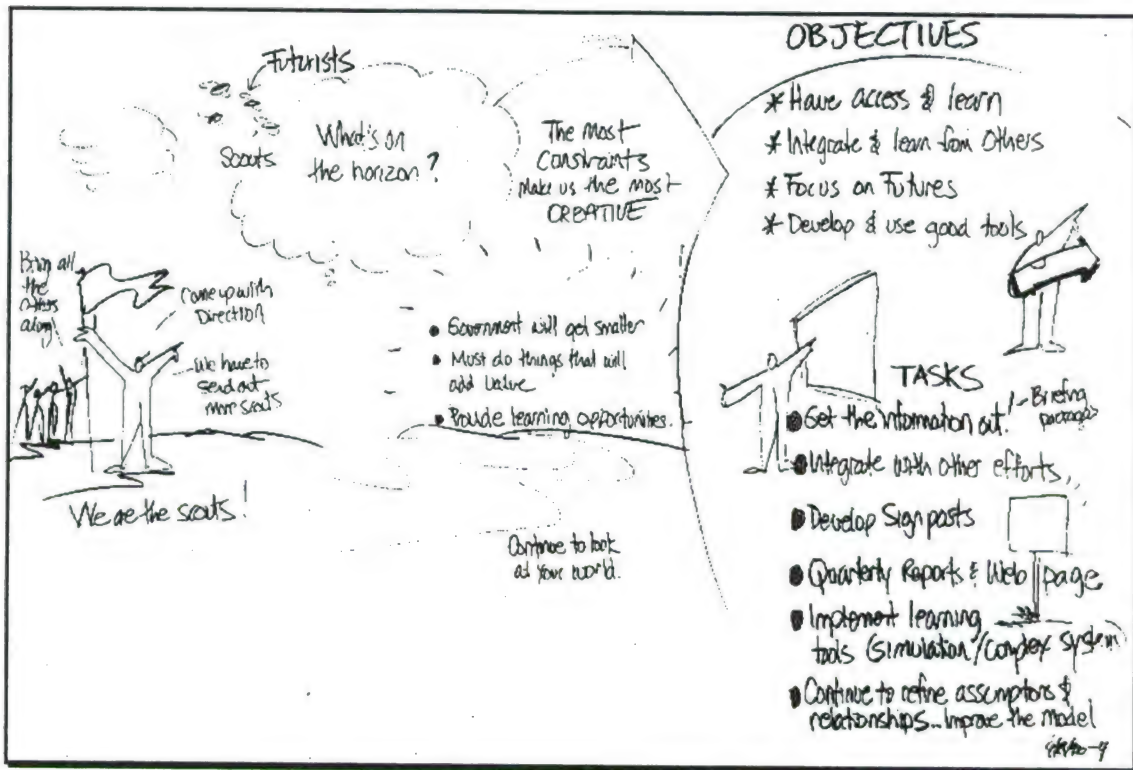 Futurists
Scouts
What's on
the horizon?
The most
Constraints
Make us the most
CREATIVE
Bring all
the
others
along!
Come up with
Direction
We have to
send out
more scouts
We are the scouts!
• Government will get smaller
• Must do things that will
add value
• Provide learning opportunities.
Continue to look
at your world.
OBJECTIVES
* Have access & learn
* Integrate & learn from Others
* Focus on Futures
* Develop & use good tools
TASKS
• Get the information out!
Briefing
packages
• Integrate with other efforts
• Develop Signposts
• Quarterly Reports & Web page
• Implement learning
tools (simulation/complex system)
• Continue to refine assumptions &
relationships... Improve the model